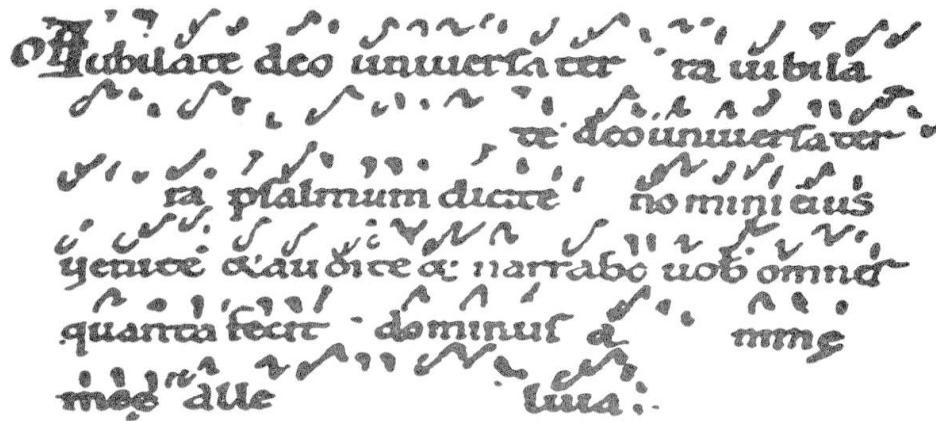 Of Iubilate deo uniuersa ter ra iubila
te deo uniuersa ter
ra psalmum dicite nomini eius
uenite & audite & narrabo uob omnes
quanta fecit dominus a nime
mee alle luia